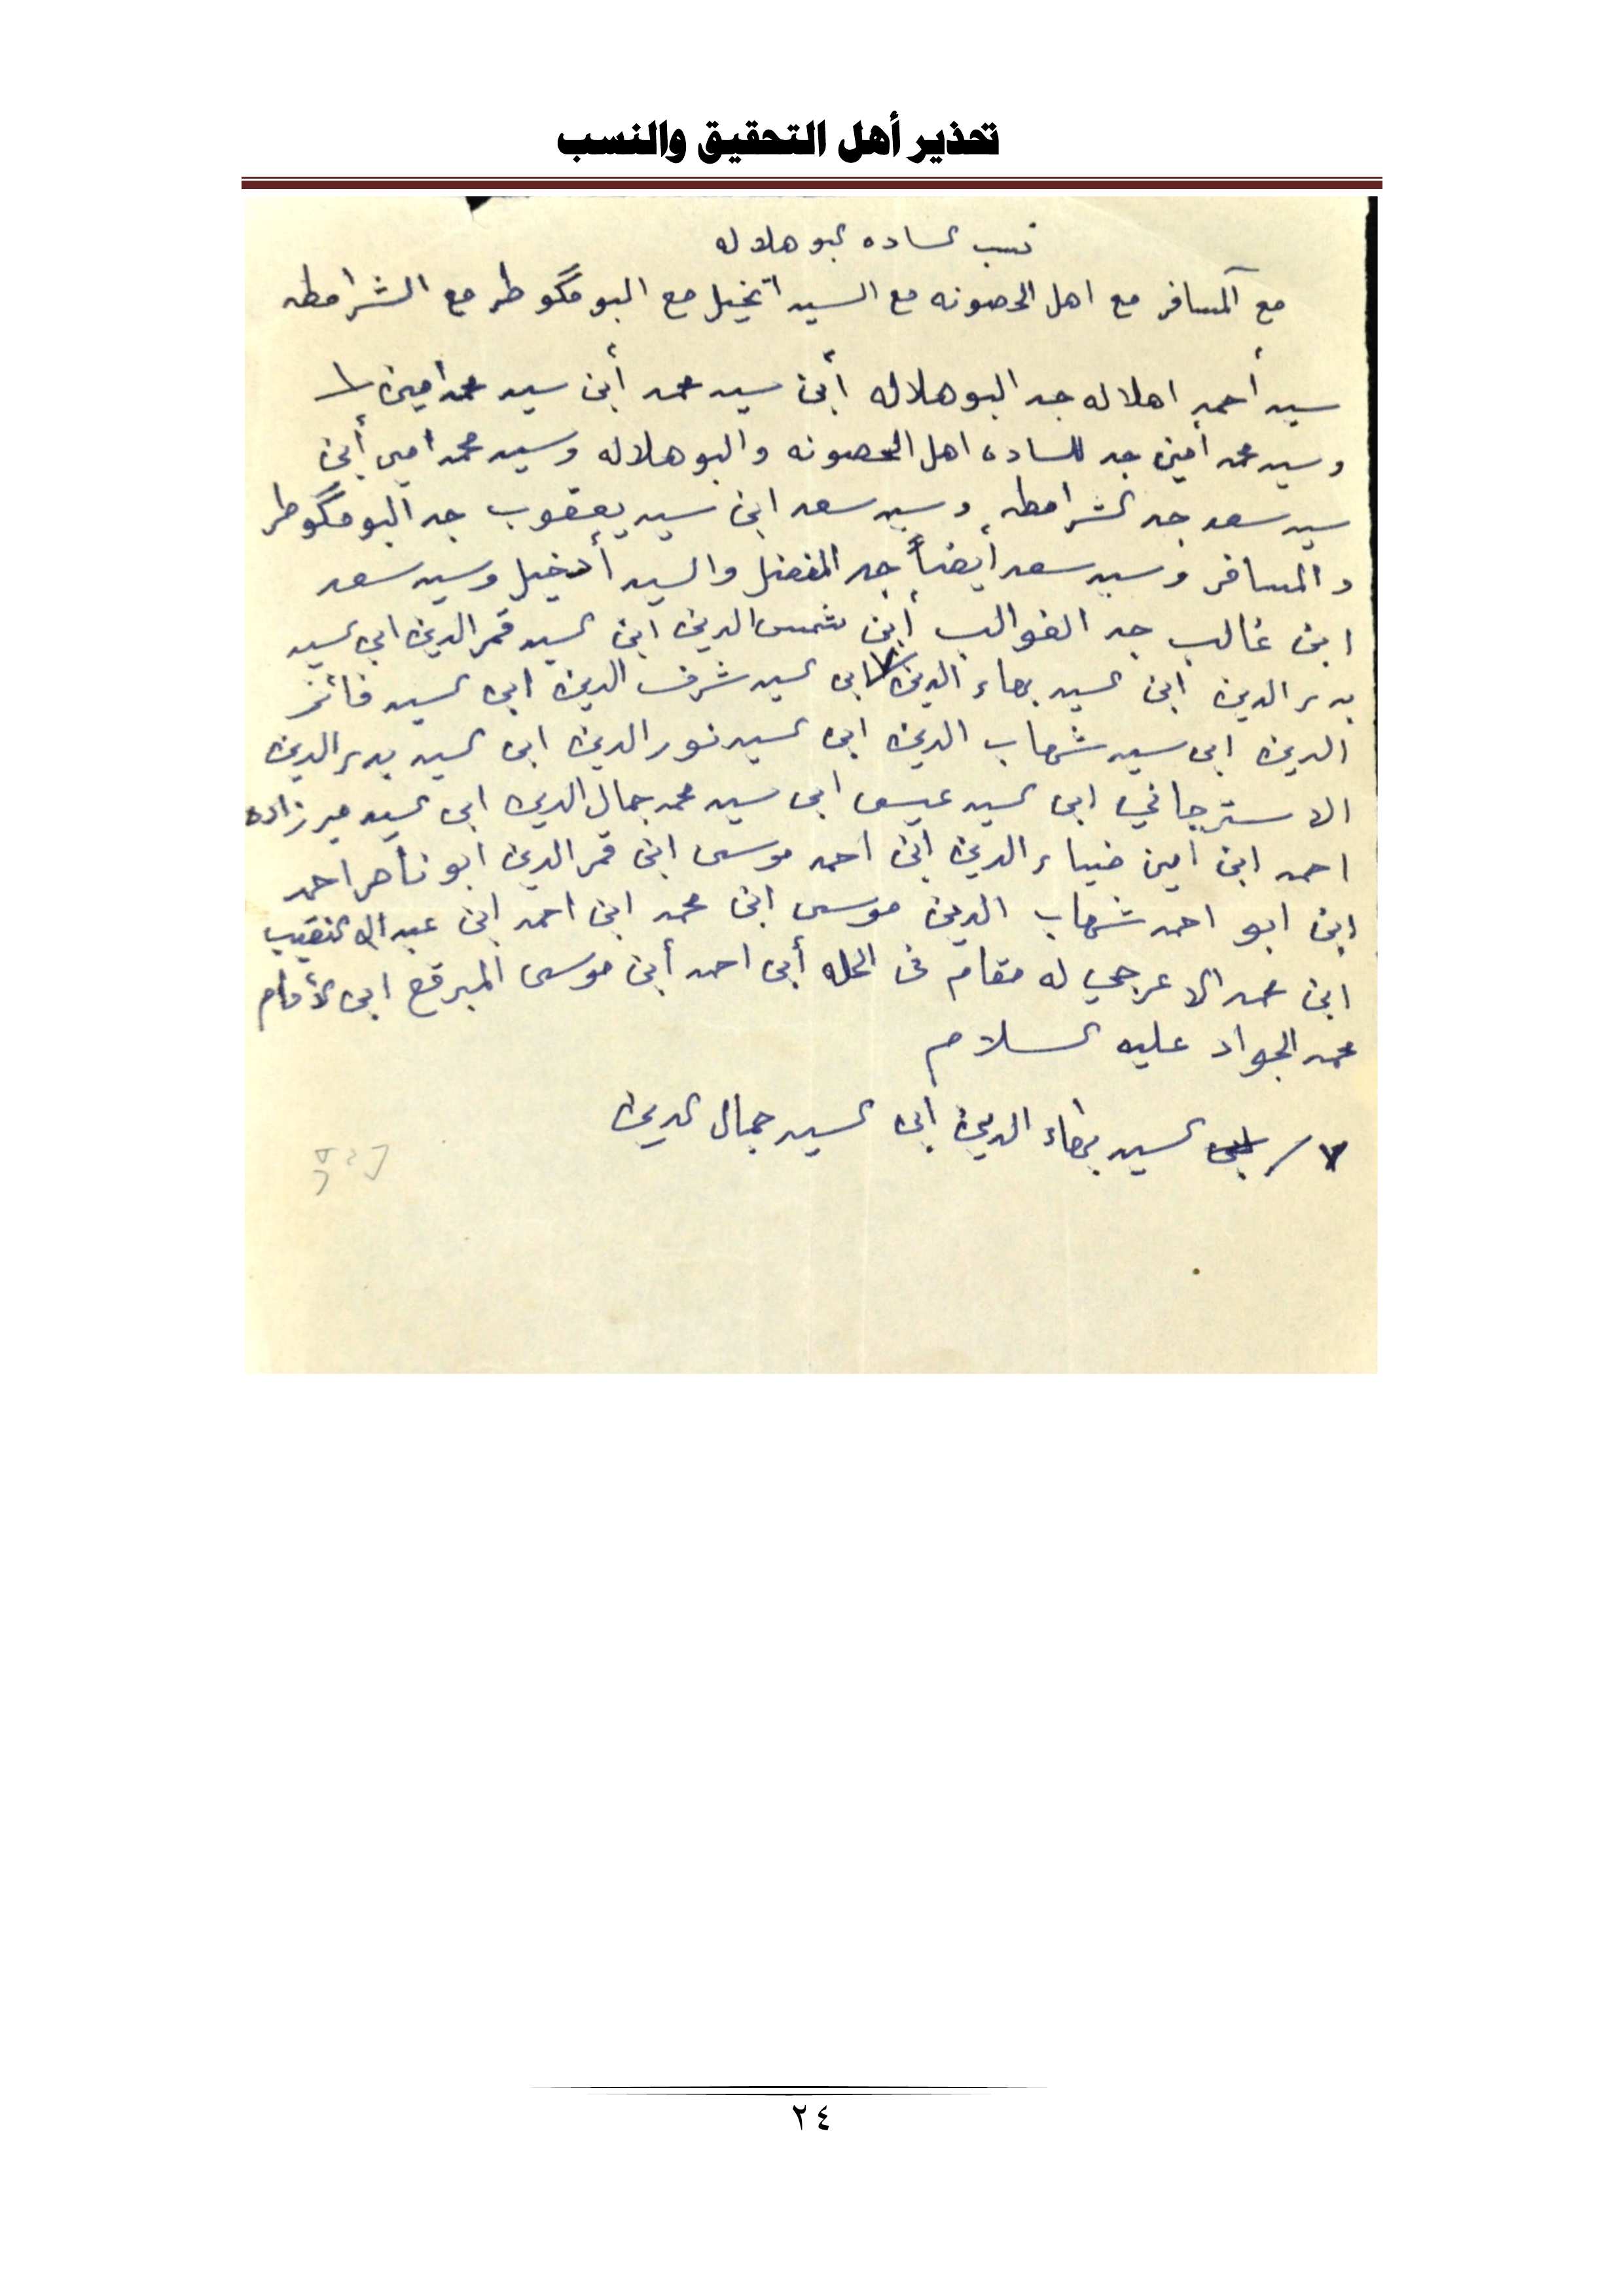 تحذير أهل التحقيق والنسب
نسب الساده البو هلاله
مع آلمسافر مع اهل الحصونه مع السيد ادخيل مع البو مگوطر مع الشرامطه
سيد أحمد اهلاله جد البو هلاله أبن سيد محمد أبن سيد محمد امين
و سيد محمد أمين جد الساده اهل الحصونه والبو هلاله وسيد محمد امين أبن
سيد سعد جد الشرامطه وسيد سعد ابن سيد يعقوب جد البو مگوطر
والمسافر وسيد سعد أيضاً جد المفضل والسيد أدخيل وسيد سعد
ابن غالب جد الغوالب أبن شمس الدين ابن السيد قمر الدين ابن السيد
بدر الدين ابن السيد بهاء الدين ٧/ ابن السيد شرف الدين ابن السيد فائز
الدين ابن سيد شهاب الدين ابن السيد نور الدين ابن السيد بدر الدين
الاسترجاني ابن السيد عيسى ابن سيد محمد جمال الدين ابن السيد مير زاده
احمد ابن امين ضياء الدين ابن احمد موسى ابن قمر الدين ابو ناصر احمد
ابن ابو احمد شهاب الدين موسى ابن محمد ابن احمد ابن عبد الله النقيب
ابن محمد الاعرجي له مقام في الحله أبن احمد أبن موسى المبرقع ابن الأمام
محمد الجواد عليه السلام
٧/ السيد بهاء الدين ابن السيد جمال الدين
٢٤